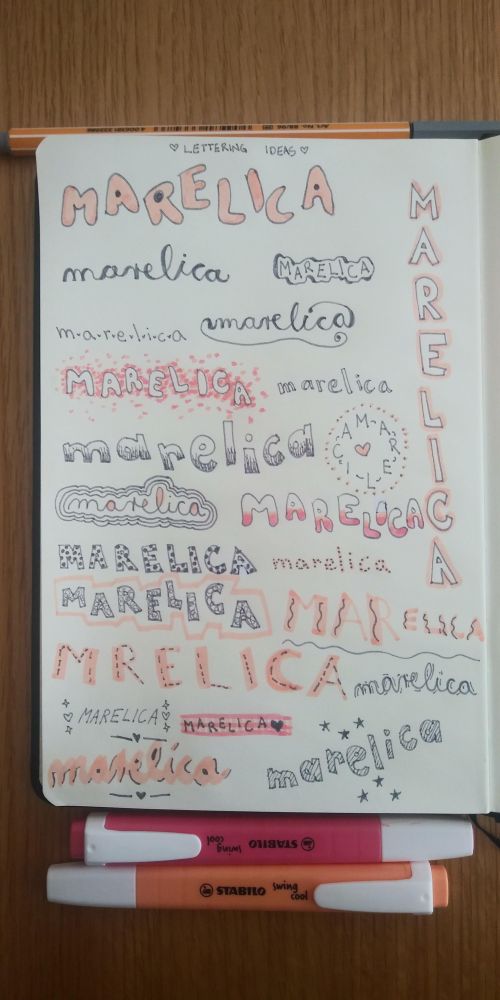 ♡ LETTERING IDEAS ♡
MARELICA
MARELICA
marelica
MARELICA
m.a.r.e.l.i.c.a
marelica
MARELICA
marelica
marelica
MARELICA
marelica
MARELICA
MARELICA
marelica
MARELICA
MARELICA
MRELICA
marelica
MARELICA
MARELICA
marelica
marelica
STABILO swing cool
STABILO swing cool